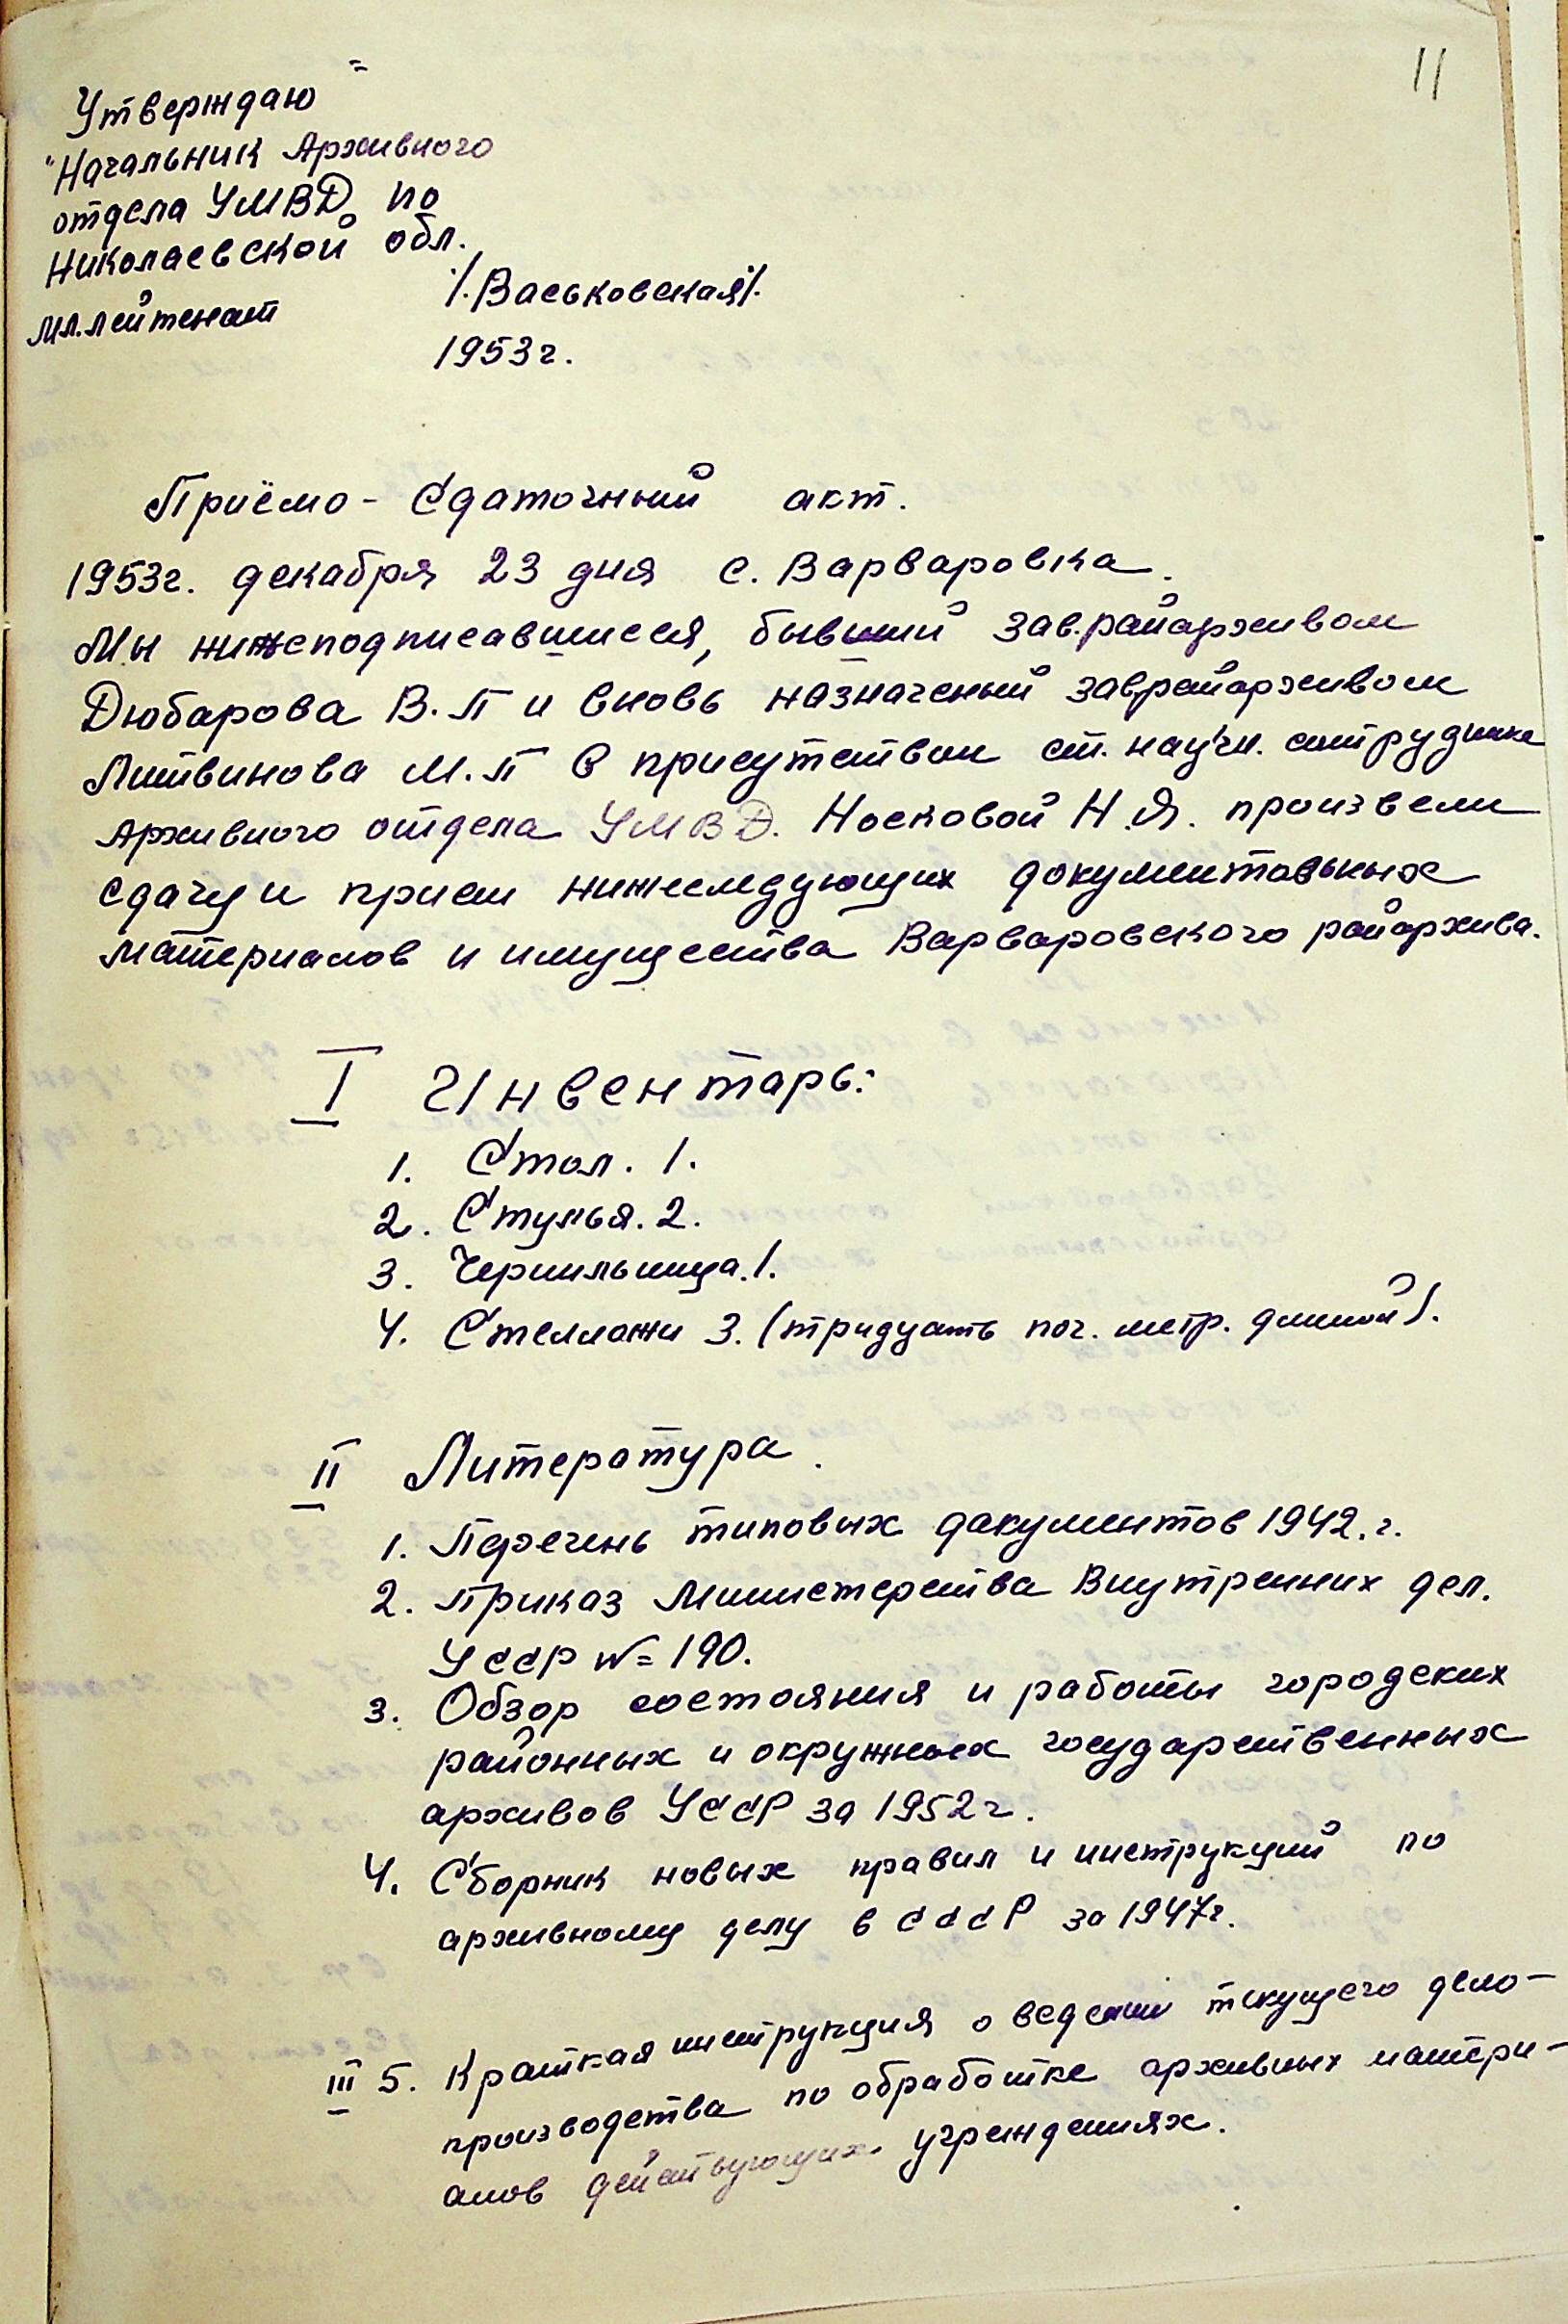 11
Утверждаю"
"Начальник Архивного
отдела УМВД по
Николаевской обл.
мл.лейтенат /.Васьковская/.
1953г.
Приёмо-Сдаточный акт.
1953г. декабря 23 дня с. Варваровка.
Мы нижеподписавшиеся, бывший зав.райархивом
Дюбарова В.П и вновь назначеный заврайархивом
Литвинова М.П в присутствии ст. научн. сотрудника
Архивного отдела УМВД. Носковой Н.Я. произвели
сдачу и прием нижеследующих документовьных
материалов и имущества Варваровского райархива.
I Инвентарь:
1. Стол. 1.
2. Стулья. 2.
3. Чернильница. 1.
4. Стеллажи 3. (тридцать пог. метр. длиной).
II Литература.
1. Перечень типовых дакументов 1942. г.
2. Приказ Министерства Внутренних дел.
УССР №=190.
3. Обзор состояния и работы городских
районных и окружных государственных
архивов УССР за 1952г.
4. Сборник новых правил и инструкций по
архивному делу в СССР за 1947г.
III 5. Краткая инструкция о ведении текущего дело-
производства по обработке архивных матери-
алов действующих учреждениях.